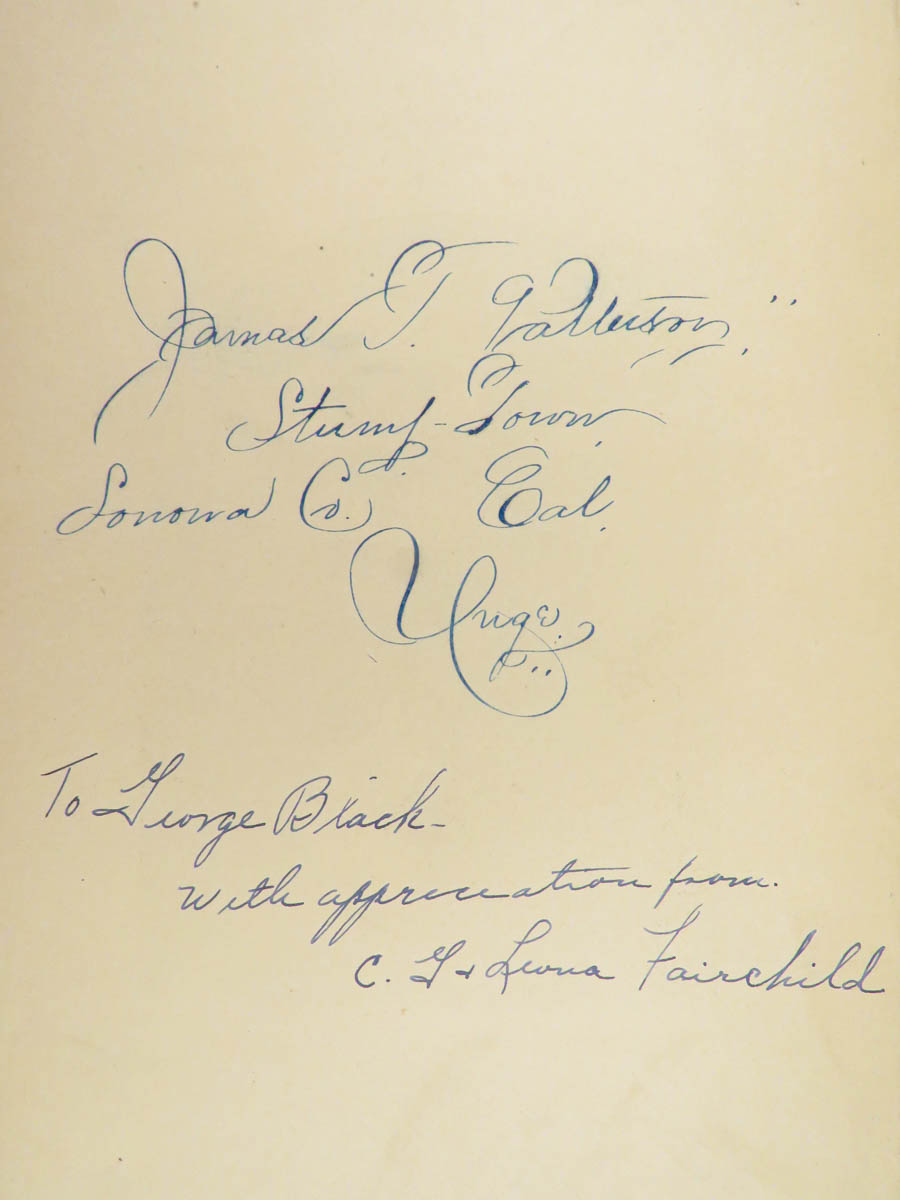 James T. Patterson,"
Stump-Town,
Sonoma Co. Cal.
To George Black-
With appreciation from.
C. G + Leona Fairchild